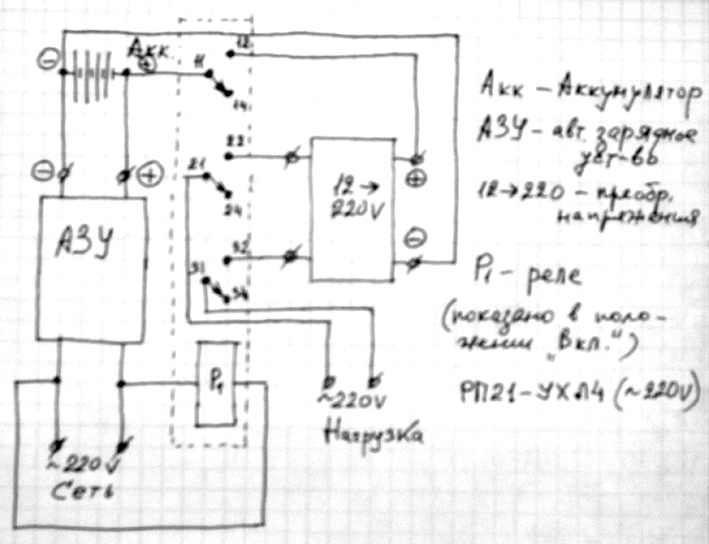 ⊖ Акк. ⊕
11
12
14
⊖ ⊕
АЗУ
21
22
24
31
32
34
12→
220V
⊕
⊖
P₁
~220V
Сеть
~220V
Нагрузка
Акк – Аккумулятор
АЗУ – авт. зарядное
уст-во
12→220 – преобр.
напряжения
P₁ – реле
(показано в поло-
жении „Вкл.“)
РП21-УХЛ4 (~220V)